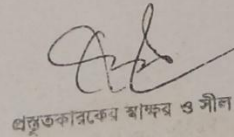 প্রস্তুতকারকের স্বাক্ষর ও সীল